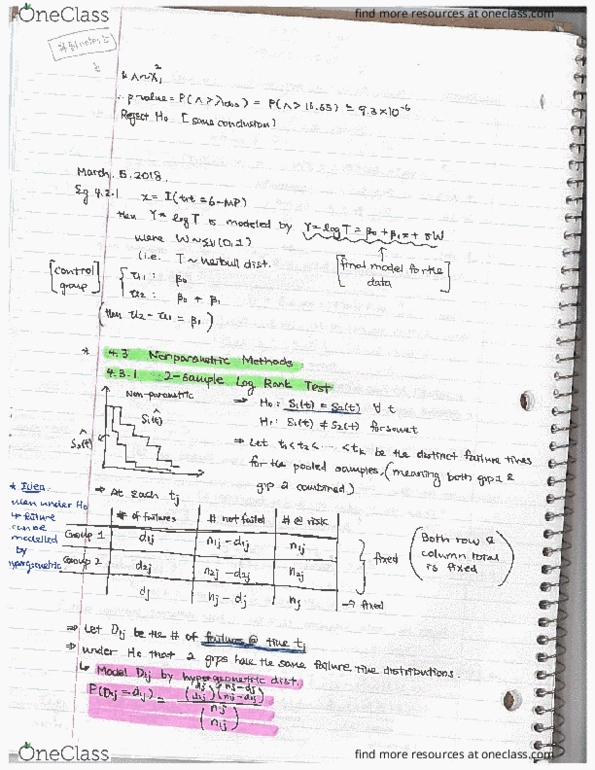 OneClass
find more resources at oneclass.com
& Λ~χ²₁
∴ p value = P(Λ > λobs) = P(Λ > 19.65) ≃ 9.3×10⁻⁶
Reject H₀ [same conclusion]
March. 5. 2018.
Eg 4.2.1 x = I(trt = 6-MP)
then Y = log T is modeled by Y = log T = β₀ + β₁x + σW
where W ~ EV(0,1)
(i.e. T ~ Weibull dist.
[final model for the data]
[control group]
u₁ : β₀
u₂ : β₀ + β₁
(then u₂ - u₁ = β₁)
* 4.3 Nonparametric Methods
4.3.1 2-Sample Log Rank Test
Non-parametric
Ŝ₁(t)
Ŝ₂(t)
⇒ H₀ : S₁(t) = S₂(t) ∀ t
H₁ : S₁(t) ≠ S₂(t) for some t
⇒ Let t₁<t₂< ... <tₖ be the distinct failure times
for the pooled samples. (meaning both grp 1 &
grp 2 combined)
* Idea:
when under H₀
↳ failure
can be
modelled
by
hypergeometric
⇒ At each tj
# of failures | # not failed | # @ risk
Group 1 | d1j | n1j - d1j | n1j
Group 2 | d2j | n2j - d2j | n2j
dj | nj - dj | nj
fixed
→ fixed
(Both row & column total is fixed)
⇒ Let D1j be the # of failures @ time tj
⇒ under H₀ that 2 grps have the same failure time distributions.
↳ Model D1j by hypergeometric dist.
P(D1j = d1j) = (dj d1j)(nj-dj n1j-d1j) / (nj n1j)
OneClass
find more resources at oneclass.com